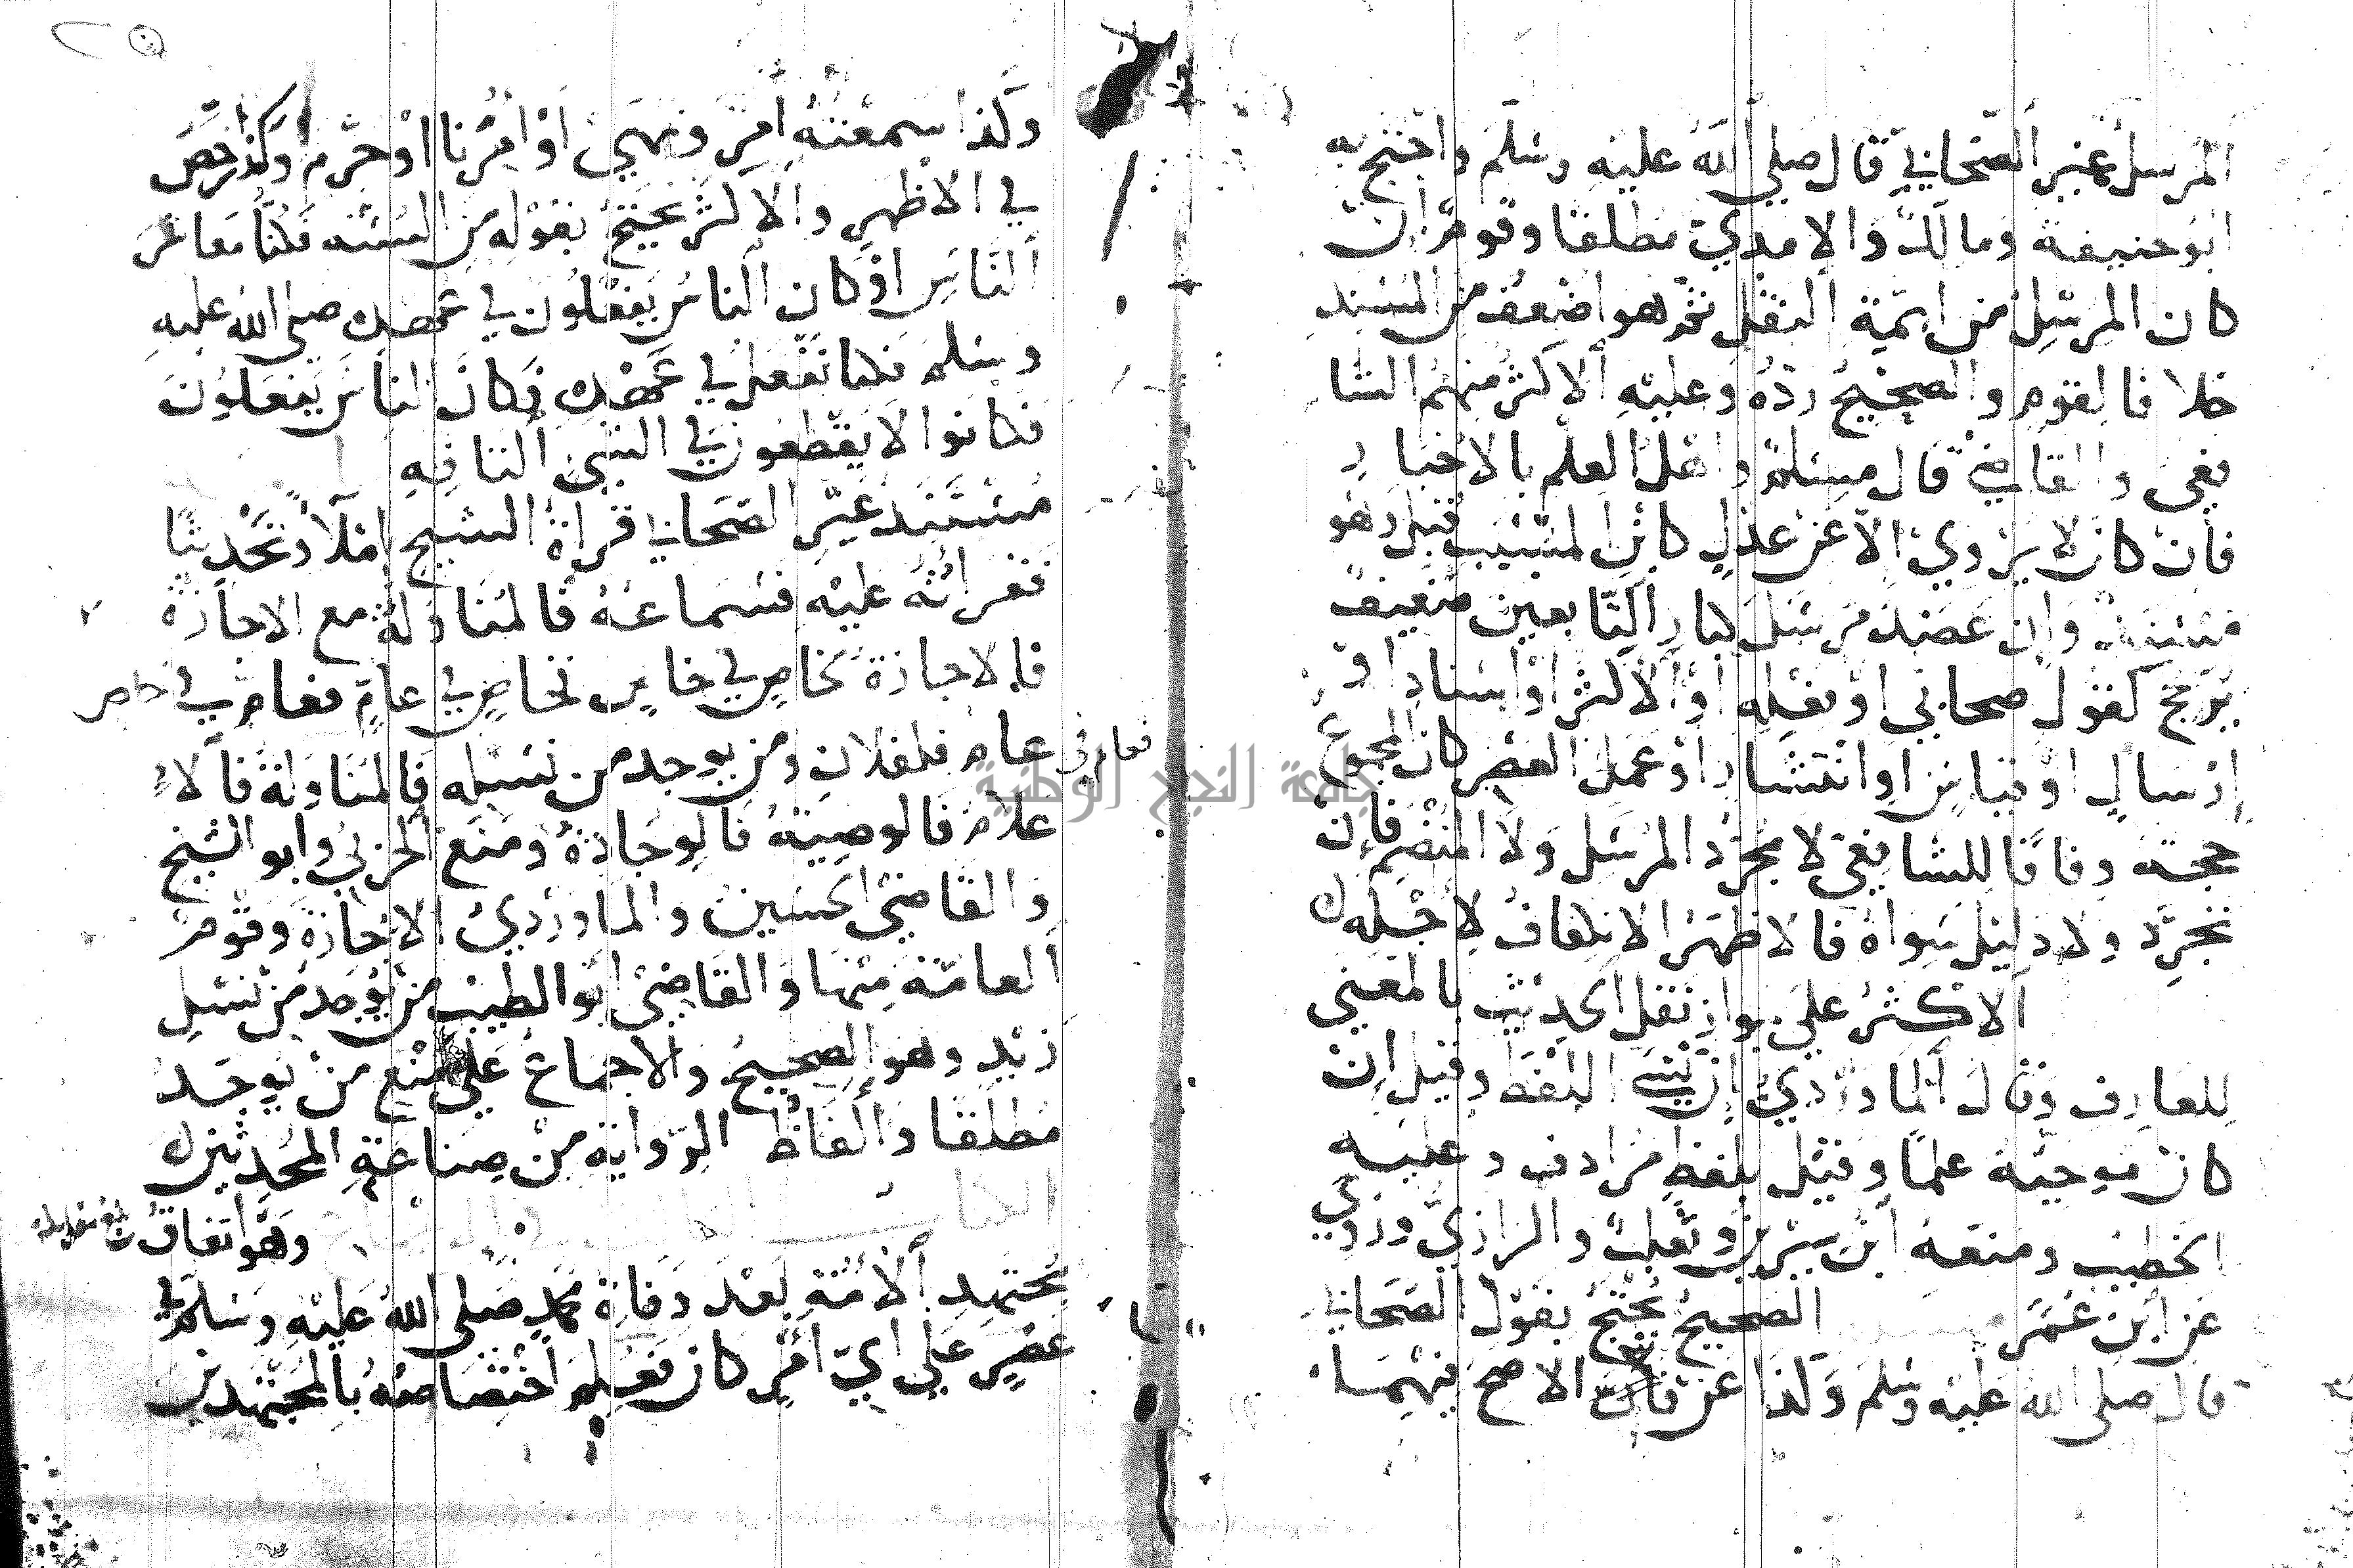 المرسل غير الصحابي قال صلى الله عليه وسلم واحتج به
ابو حنيفة ومالك والامدي مطلقا وقوم ان
كان المرسل من ايمة النقل ثم هو اضعف من المسند
خلافا لقوم والصحيح رده وعليه الاكثر منهم الشا
فعي والقاضي قال مسلم واهل العلم بالاخبار
فان كان لا يروي الا عن عدل كابن المسيب قبل وهو
مسند وان عضد مرسل كبار التابعين ضعيف
يرجح كقول صحابي او فعله او الاكثر او اسناد او
إرسال او قياس او انتشار او عمل العصر كان المجموع
حجة وفاقا للشافعي لا مجرد المرسل ولا المنضم فان
تجرد ولا دليل سواه فالاظهر الانكفاف لاجله
الاكثر على جواز نقل الحديث بالمعني
للعارف وقال الماوردي ان نسي اللفظ وقيل ان
كان موجبه علما وقيل بلفظ مرادف وعليه
الخطيب ومنعه ابن سيرين وثعلب والرازي وروي
عن ابن عمر الصحيح يحتج بقول الصحابي
قال صلى الله عليه وسلم وكذا عن الاصح فيهما
وكذا سمعته امر ونهي او امرنا او حرم وكذا رخص
في الاظهر والاكثر يحتج بقوله من السنة فكنا معاشر
الناس او كان الناس يفعلون في عهده صلى الله عليه
وسلم فكنا نفعل في عهده فكان الناس يفعلون
فكانوا لا يقطعون في الشي التافه
مستند غير الصحابي قراة الشيخ املاء وتحديثا
فقراته عليه فسماعه فالمناولة مع الاجازة
فالاجازة لخاص في خاص فخاص في عام فعام في خاص
فعام في عام فلفلان ومن يوجد من نسله فالمناولة فالا
علام فالوصية فالوجادة ومنع الحربي وابو الشيخ
والقاضي الحسين والماوردي الاجازة وقوم
العامة منها والقاضي ابو الطيب من يوجد من نسل
زيد وهو الصحيح والاجماع على منع من يوجد
مطلقا والفاظ الرواية من صناعة المحدثين
الكتاب
وهو اتفاق
مجتهد الامة بعد وفاة محمد صلى الله عليه وسلم في
عصر على اي امر كان فعلم اختصاصه بالمجتهدين
جامعة النجاح الوطنية